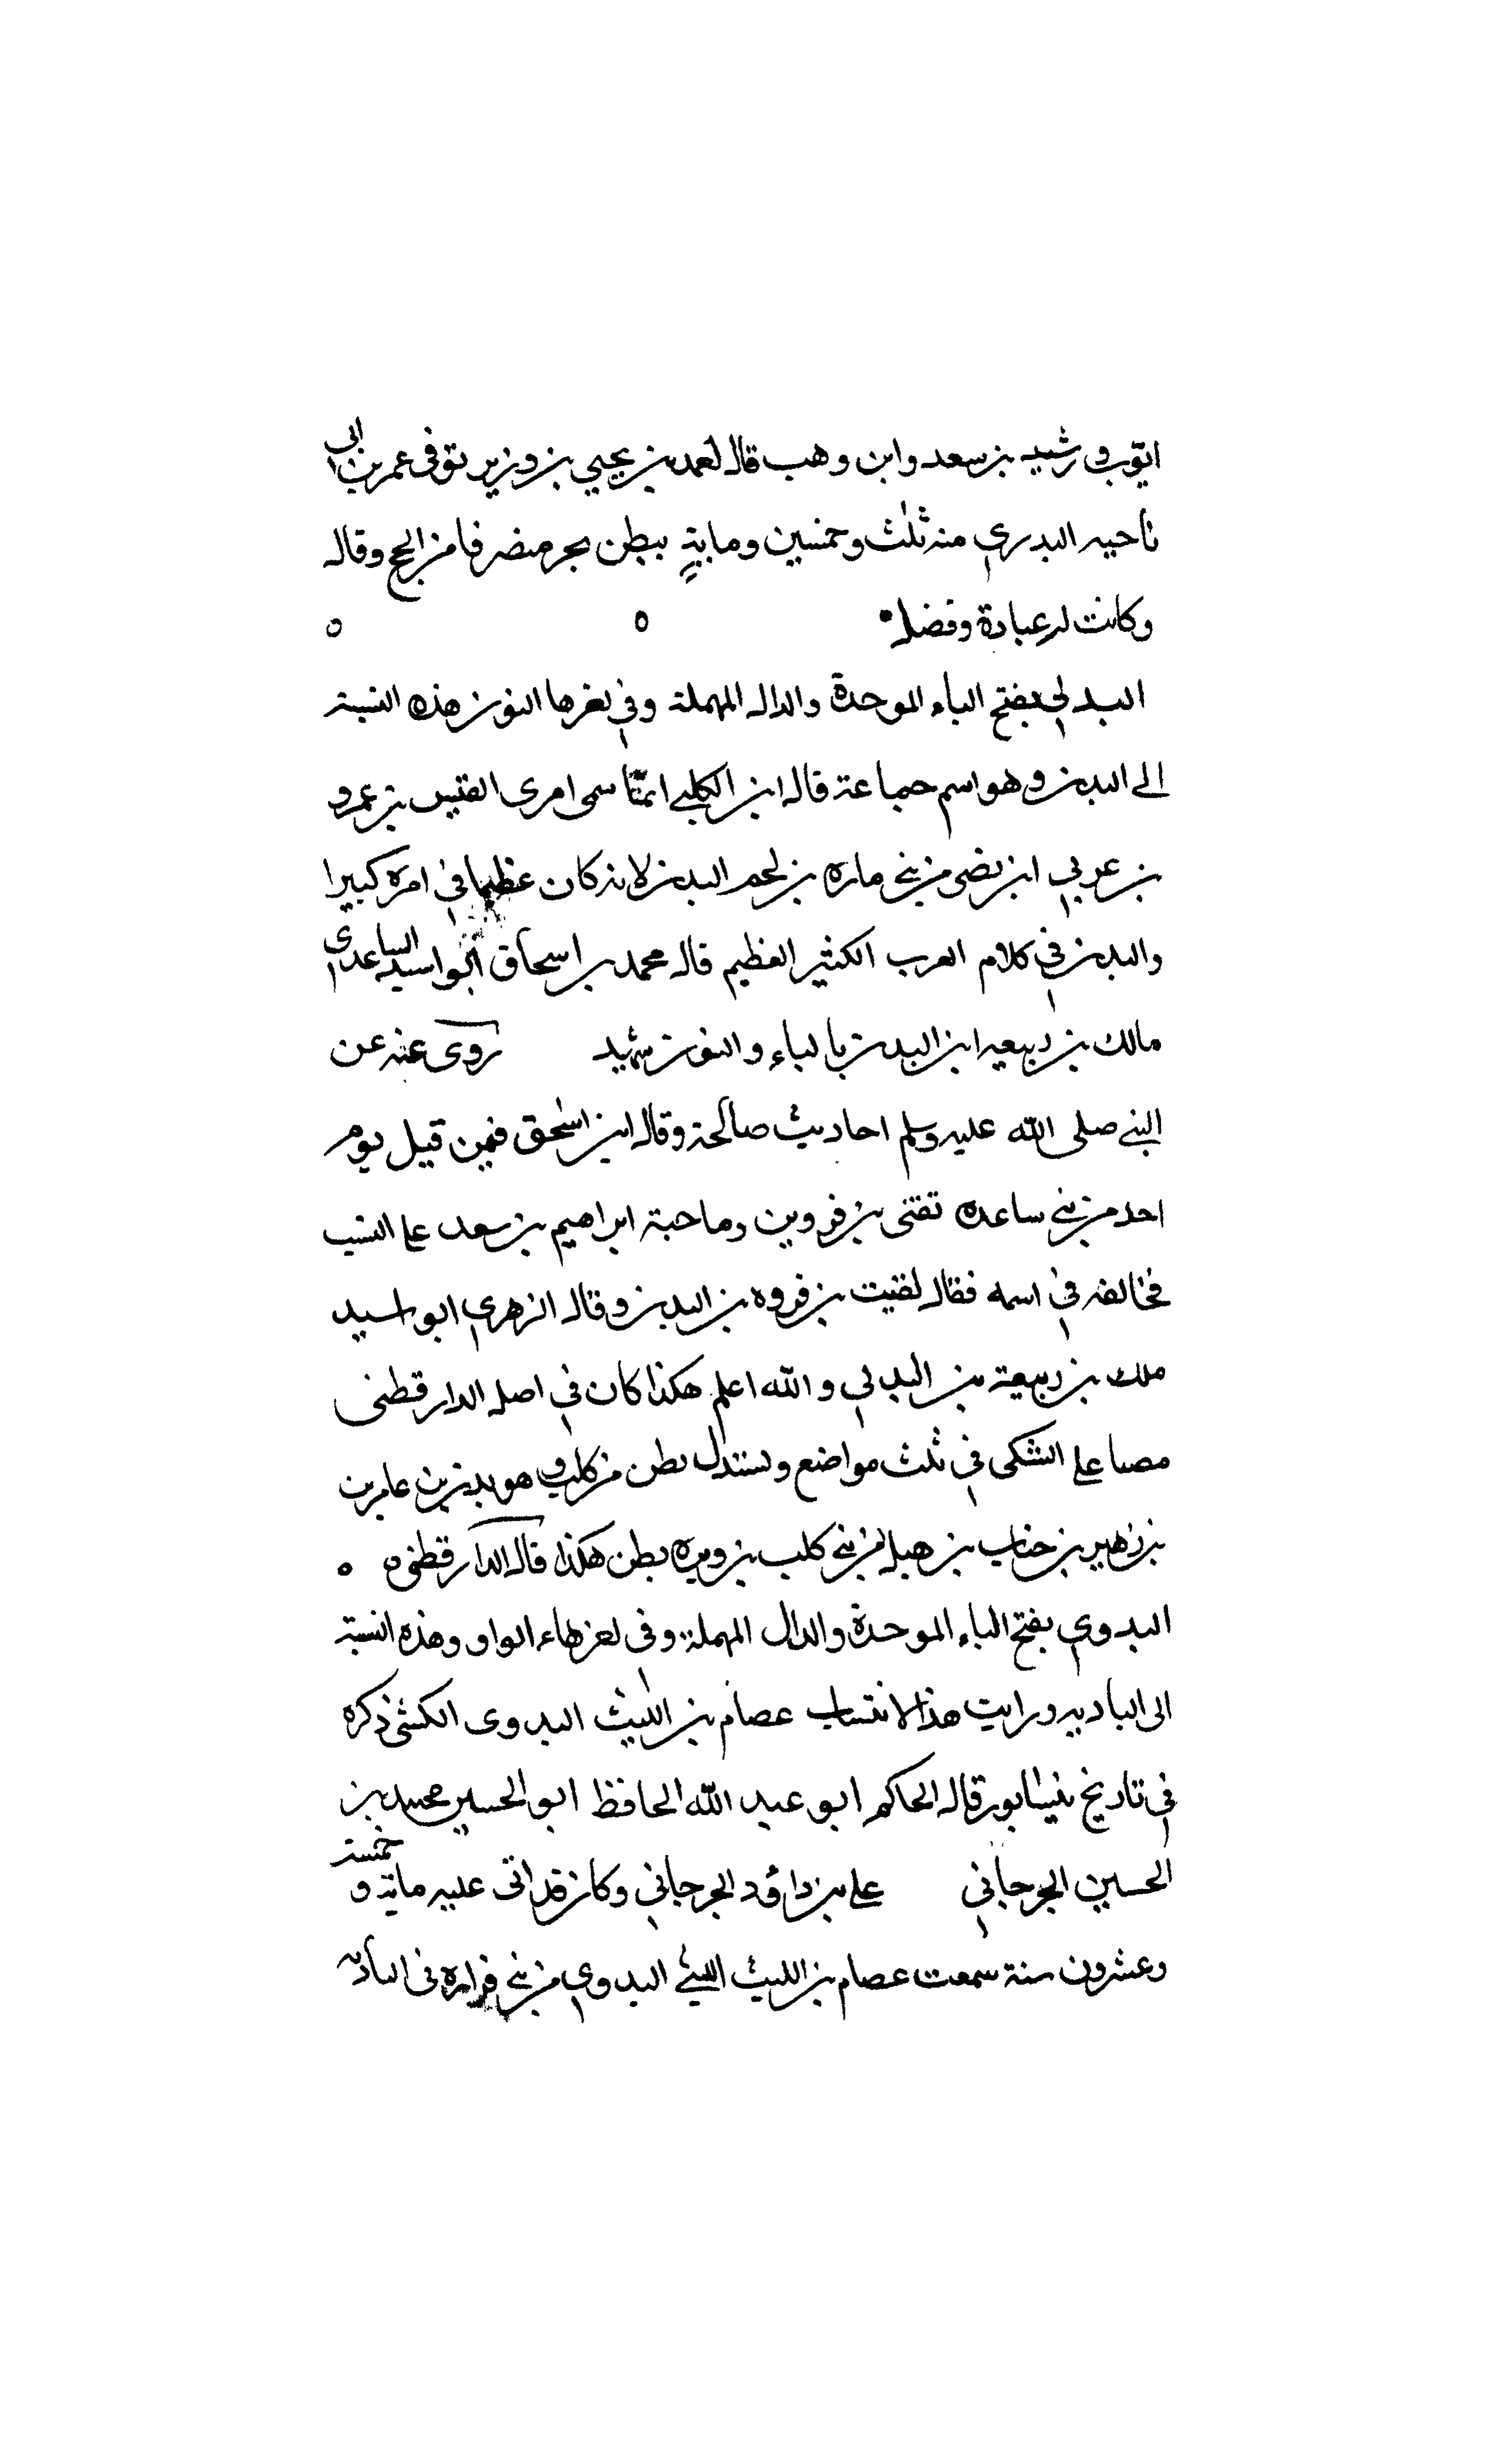 ايوب ورشيد بن سعد وابن وهب قال احمد بن يحيي بن وزير توفى عمر بن ابى
ناحيه البدري سنه ثلث وخمسين وماية ببطن بحر منصرفا من الحج وقال
وكانت له عبادة وفضل
البدلي بفتح الباء الموحدة والدال المهملة وفي اخرها النون هذه النسبة
الى البدن وهو اسم جماعة قال ابن الكلبي انما سمى امرى القيس بن عمرو
بن عربي ابن بضى من بني ماره بن لحم البدن لانه كان عظيما في امره كبيرا
والبدن في كلام العرب الكثير العظيم قال محمد بن اسحاق ابو اسيد الساعدى
مالك بن ربيعه ابن البدن بالباء والنون شهد روى عنه عن
النبي صلى الله عليه وسلم احاديث صالحة وقال ابن اسحق فيمن قيل يوم
احد من بني ساعده تقتى بن فروين وصاحبة ابراهيم بن سعد على النسب
فخالفه في اسمه فقال لقتيت بن فروه بن البدن وقال الزهري ابو اسيد
ملك بن ربيعة بن البدلي والله اعلم هكذا كان في اصل الدارقطنى
على الشكى في ثلث مواضع بطن من كلب وهو بدن بن عامر بن
بن زهير بن جناب بن هبل من بني كلب بن وبره بطن هكذا قال الدارقطنى
البدوي بفتح الباء الموحدة والدال المهملة وفى اخرها الواو وهذه النسبة
الى الباديه ورايت هذا الانتساب عصام بن الليث البدوى الكشى ذكره
في تاريخ نيسابور قال الحاكم ابو عبد الله الحافظ ابو الحسين محمد بن
الحسين الجرجاني على بن داؤد الجرجاني وكان قد اتى عليه ماية و خمسة
وعشرون سنة سمعت عصام بن الليث الليثي البدوي من بني فزاره فى البادية